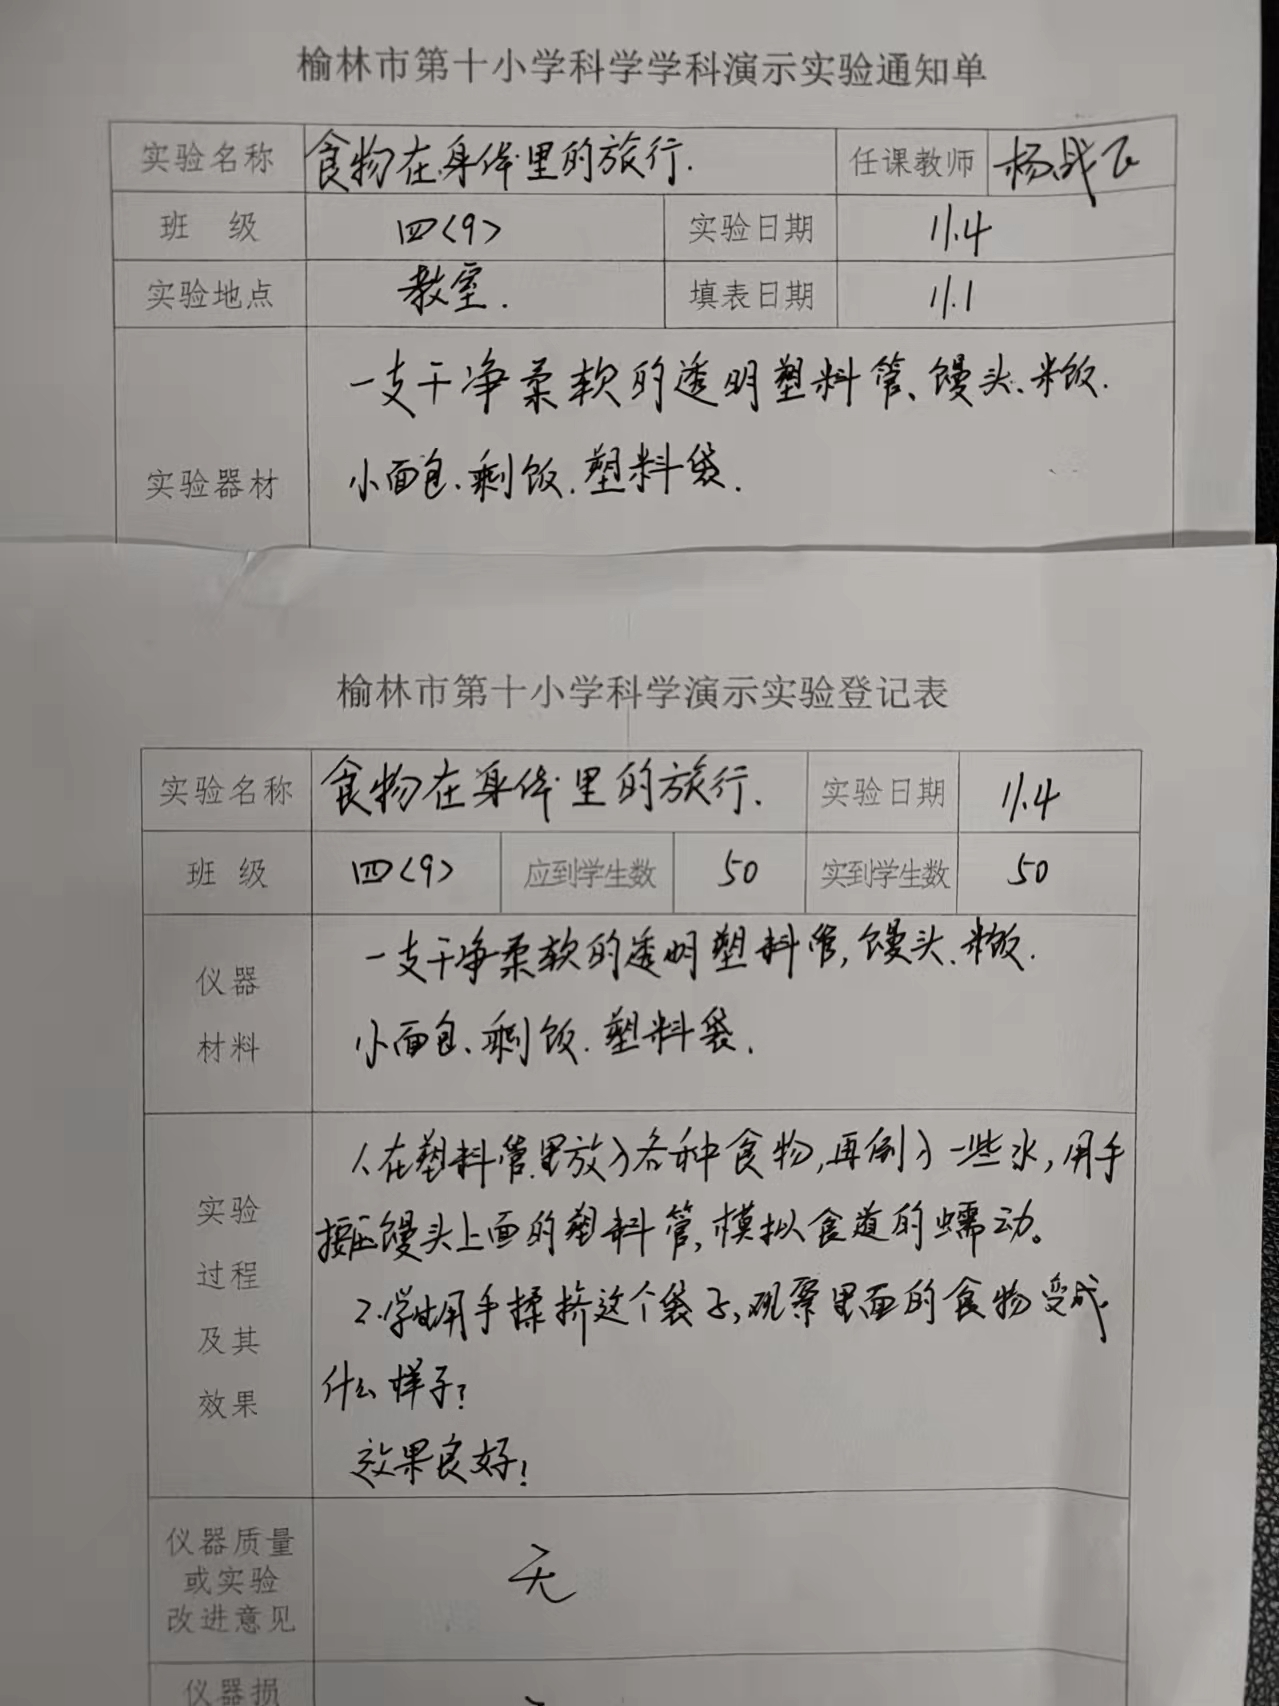 榆林市第十小学科学学科演示实验通知单
实验名称 食物在身体里的旅行. 任课教师 杨战飞
班 级 四(9) 实验日期 11.4
实验地点 教室. 填表日期 11.1
一支干净柔软的透明塑料管、馒头、米饭.
实验器材 小面包、剩饭.塑料袋.
榆林市第十小学科学演示实验登记表
实验名称 食物在身体里的旅行. 实验日期 11.4
班 级 四(9) 应到学生数 50 实到学生数 50
仪器 一支干净柔软的透明塑料管,馒头、米饭.
材料 小面包、剩饭.塑料袋.
1.在塑料管里放入各种食物,再倒入一些水,用手
实验 按压馒头上面的塑料管,模拟食道的蠕动。
过程 2.学生用手揉挤这个袋子,观察里面的食物变成
及其 什么样子?
效果 效果良好!
仪器质量
或实验 无
改进意见
仪器损